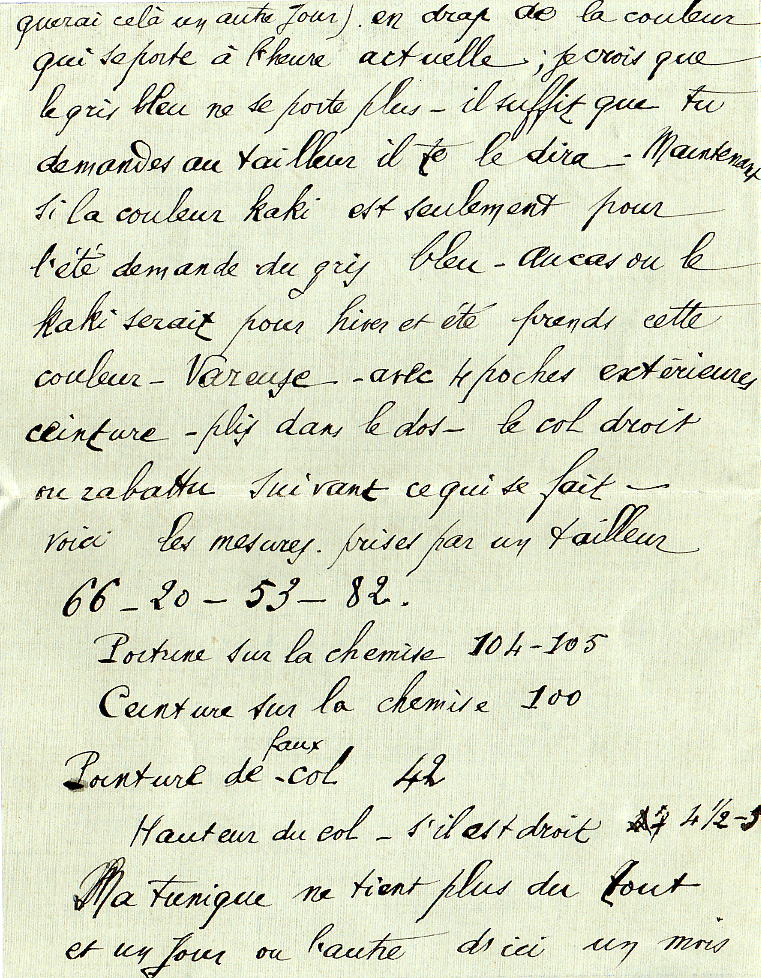 querai celà un autre Jour) en drap de la couleur
qui se porte à l'heure actuelle ; je crois que
le gris bleu ne se porte plus - il suffit que tu
demandes au tailleur il te le dira - Maintenant
si la couleur kaki est seulement pour
l'été demande du gris bleu - au cas ou le
kaki serait pour hiver et été prends cette
couleur - Vareuse - avec 4 poches extérieures
ceinture - plis dans le dos - le col droit
ou rabattu suivant ce qui se fait -
voici les mesures. prises par un tailleur
66 - 20 - 53 - 82.
Poitrine sur la chemise 104-105
Ceinture sur la chemise 100
faux
Pointure de -col 42
Hauteur du col - s'il est droit 4 1/2 - 5
Ma tunique ne tient plus du tout
et un Jour ou l'autre d'ici un mois